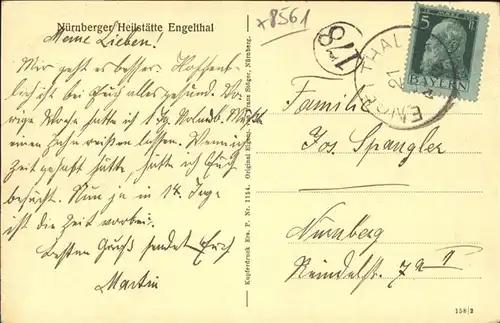 Nürnberger Heilstätte Engelthal
+8561
Meine Lieben!
Mir geht es besser. Hoffent-
lich ist bei Euch alles gesund. Vo-
rige Woche hatte ich 1 Tg. Urlaub. Mußte
einen Zahn reißen lassen. Wenn ich
Zeit gehabt hätte, hätte ich Euch
besucht. Nun ja in 14 Tage
ist die Zeit vorbei.
Besten Gruß sendet Euch
Martin
Kupferdruck Ers. P. Nr. 1154. Original Eigent. Wolfram Stöger, Nürnberg.
178
ENGELTHAL
21
5
BAYERN
Familie
Jos. Spangler
Nürnberg
Reindelstr. 7 a I
158|2